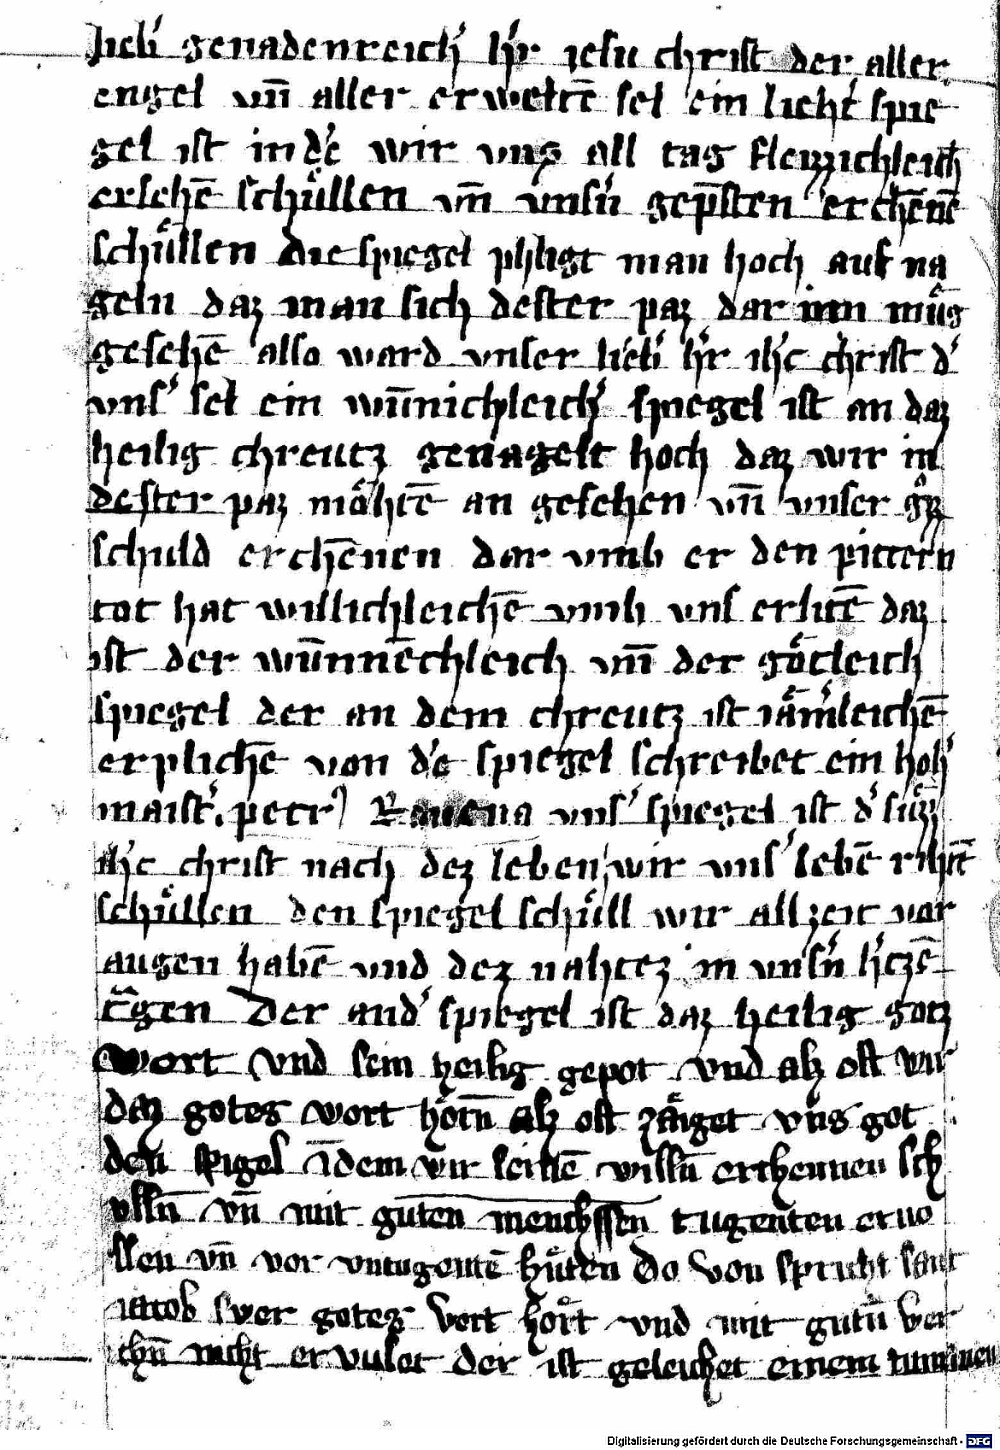 lieb' genadenreich' h'r iesu christ der aller
engel vn̄ aller erweltē sel ein licht' spie
gel ist in dē wir vns all tag fleizzichleich
ersehē schüllen vn̄ vnsn̄ gep̄sten erchēnē
schüllen die spiegel phligt man hoch auf na
geln daz man sich dester paz dar inn müg
gesehē also ward vnser lieb' h'r ih'c christ d'
vns' sel ein wūnichleich' spiegel ist an daz
heilig chreutz genagelt hoch daz wir in
dester paz möhtē an gesehen vn̄ vnser
schuld erchēnen dar vmb er den pittern
tot hat willichleichē vmb vns erlitē daz
ist der wūnnēchleich vn̄ der götleich
spiegel der an dem chreutz ist iäm'leichē
erplichē von dē spiegel schreibet ein hoh'
maist'. petr' Rauena vns' spiegel ist d' süzz
ih'c christ nach dez leben wir vns' lebē rihtē
schüllen den spiegel schüll wir allzeit vor
augen habē vnd dez nahtez in vnsn̄ h'czē
t̄gen Der and' spiegel ist daz heilig gotz
wort vnd sein heilig gepot vnd alz oft wir
daz gotes wort hörn̄ alz oft zäiget vns got
den spigel īdem wir seinē willn̄ erchennen sch
ulln̄ vn̄ mit guten menchssen tugenten ervo
llen vn̄ vor vntugentē hüten Do von spricht sant
iacob swer gotez wort hört vnd mit gutn̄ wer
chn̄ nicht ervulet der ist geleichet einem tummen
Digitalisierung gefördert durch die Deutsche Forschungsgemeinschaft - DFG